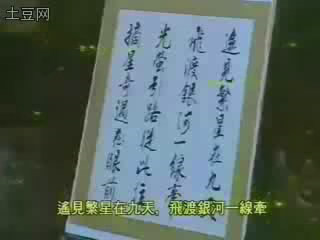 土豆网
遠見繁星在九天
飛渡銀河一線牽
光螢引路從此往
摘星奇遇在眼前
遙見繁星在九天,飛渡銀河一線牽